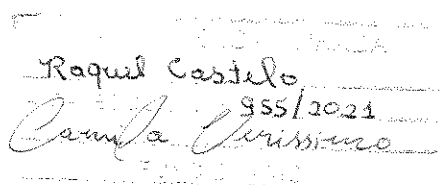 Raquel Castelo
955/2021
Camila Verissimo